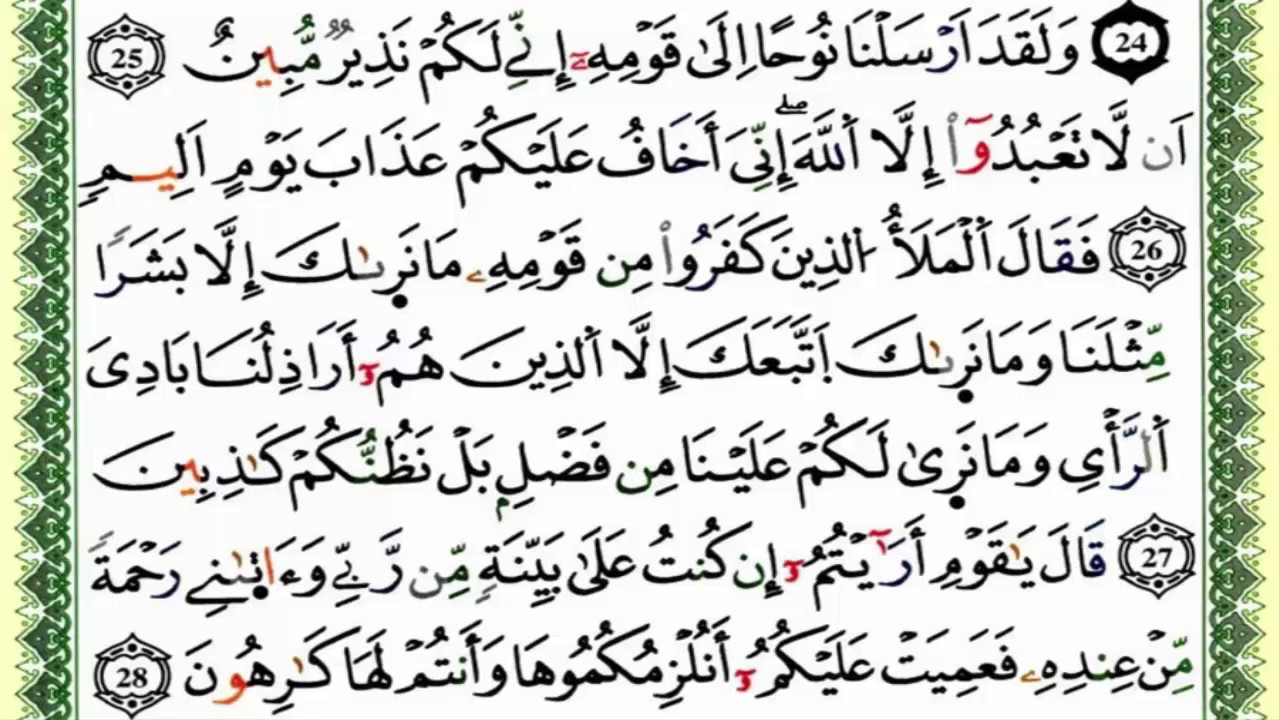 24 وَلَقَدَ اَرْسَلْنَا نُوحًا اِلَىٰ قَوْمِهِۦٓ إِنِّے لَكُمْ نَذِيرٌ مُّبِينٌ 25
اَن لَّا تَعْبُدُوٓاْ إِلَّا اَ۬للَّهَۖ إِنِّيَ أَخَافُ عَلَيْكُمْ عَذَابَ يَوْمٍ اَلِيمٖ
26 فَقَالَ اَ۬لْمَلَأُ اُ۬لذِينَ كَفَرُواْ مِن قَوْمِهِۦ مَا نَرٜىٰكَ إِلَّا بَشَرًا
مِّثْلَنَا وَمَا نَرٜىٰكَ اَ۪تَّبَعَكَ إِلَّا اَ۬لذِينَ هُمُۥٓ أَرَاذِلُنَا بَادِيَ
اَ۬لرَّأْيِ وَمَا نَرٜىٰ لَكُمْ عَلَيْنَا مِن فَضْلِۢ بَلْ نَظُنُّكُمْ كَٰذِبِينَ
27 قَالَ يَٰقَوْمِ أَرَٰٓيْتُمُۥٓ إِن كُنتُ عَلَىٰ بَيِّنَةٍ مِّن رَّبِّي وَءَاتٜىٰنِے رَحْمَةً
مِّنْ عِندِهِۦ فَعَمِيَتْ عَلَيْكُمُۥٓ أَنُلْزِمُكُمُوهَا وَأَنتُمْ لَهَا كَٰرِهُونَ 28